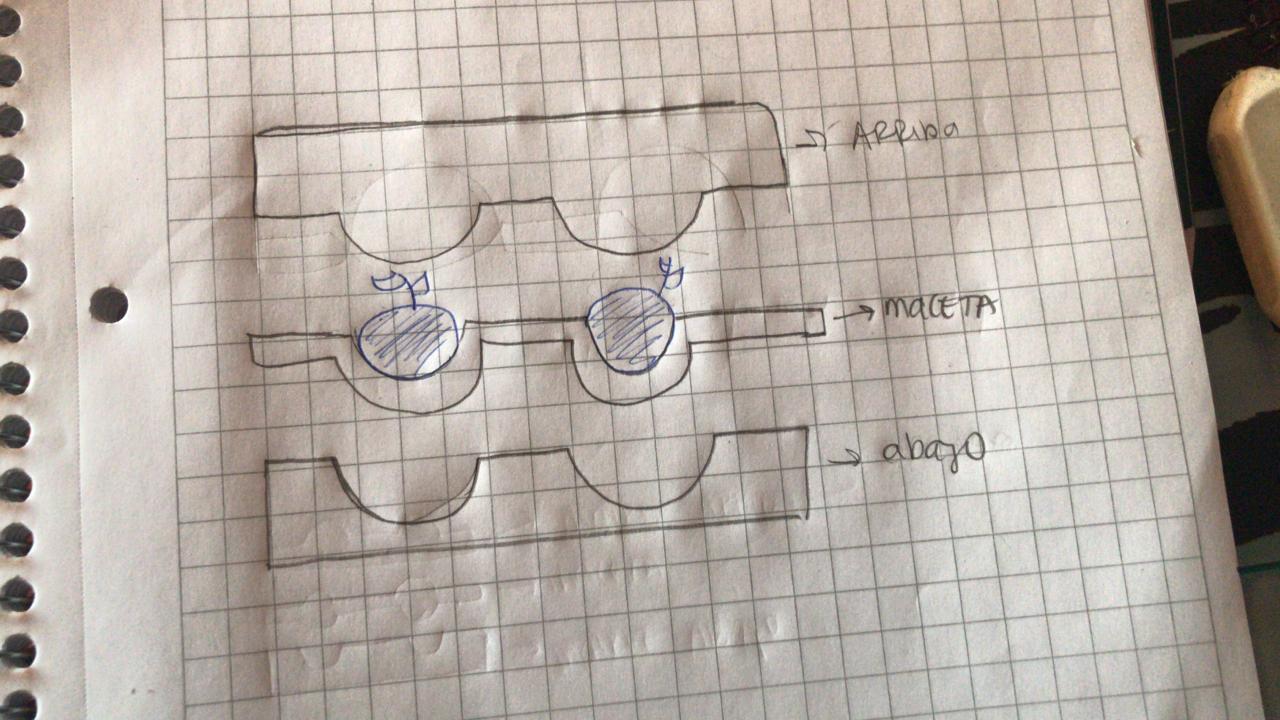 → ARRIba
→ maCETA
→ abajo